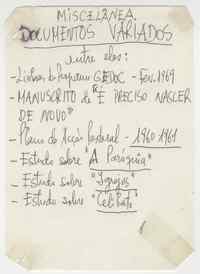 MISCELÂNEA.
DOCUMENTOS VARIADOS
entre eles:
- GEDOC - Fev. 1969
- MANUSCRITO de "É PRECISO NASCER
DE NOVO"
- Plano de Acção Pastoral - 1960 1961
- Estudo sobre "A Paróquia"
- Estudo sobre "Igrejas"
- Estudo sobre "Celibato"